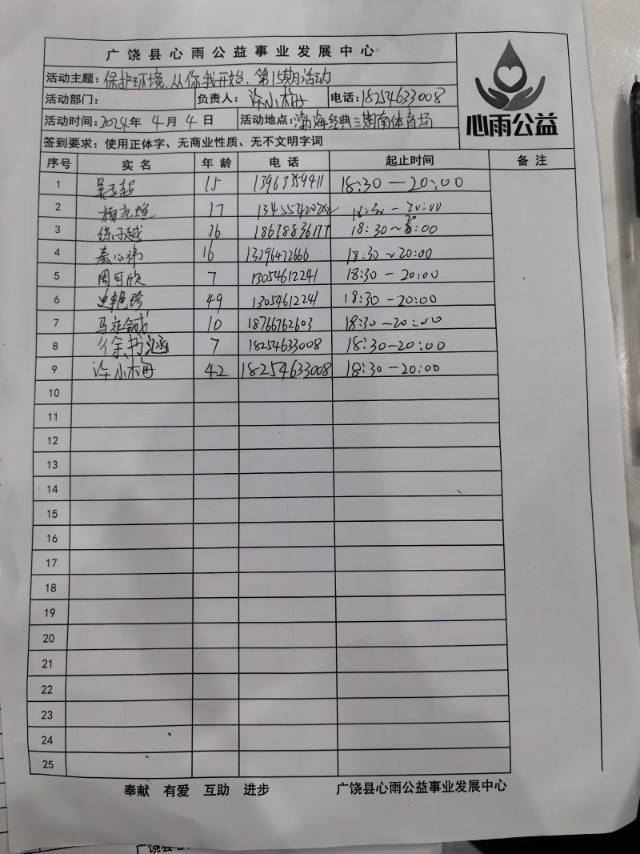 广饶县心雨公益事业发展中心
活动主题：保护环境，从你我开始，第15期活动
活动部门： 负责人：许小梅 电话：18254633008
活动时间：2024年 4月 4日 活动地点：渤海经典三期南体育场
签到要求：使用正体字、无商业性质、无不文明字词
心雨公益
序号 实名 年龄 电话 起止时间 备注
1 15 18:30—20:00
2 17 20:00
3 18678836177 18:30~
4 秦心祎 16 13296472666 18:30~20:00
5 周可欣 7 13054612241 18:30-20:00
6 49 13054612241 18:30-20:00
7 10 18766762603 18:30-20:00
8 徐 7 18254633008 18:30-20:00
9 许小梅 42 18254633008 18:30-20:00
10
11
12
13
14
15
16
17
18
19
20
21
22
23
24
25
奉献 有爱 互助 进步 广饶县心雨公益事业发展中心